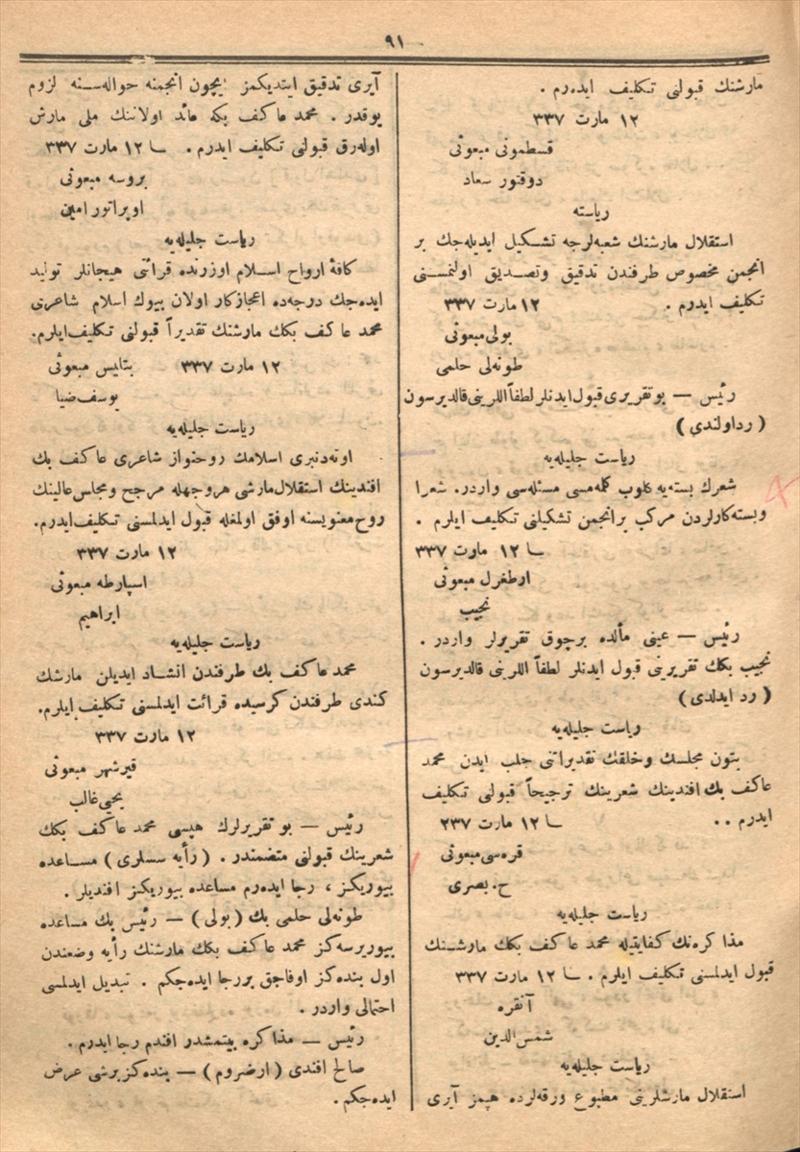 ٩١
مارشنك قبولنى تكليف ايدەرم .
١٢ مارت ٣٣٧
قسطمونى مبعوثى
دوقتور سعاد
رياسته
استقلال مارشنك شعبه‌لرجه تشكيل ايديله‌جك بر
انجمن مخصوص طرفندن تدقيق وتصديق اولنمسنى
تكليف ايدرم . ١٢ مارت ٣٣٧
بولى مبعوثى
طونه‌لى حلمى
رئيس — بو تقريرى قبول ايدنلر لطفاً اللرينى قالديرسون
( رد اولندى )
رياست جليله‌يه
شعرك بسته‌يه كلوب كلمه‌مسى مسئله‌سى واردر. شعرا
وبسته‌كارلردن مركب بر انجمن تشكيلنى تكليف ايلرم .
١٢ مارت ٣٣٧
ارطغرل مبعوثى
نجيب
رئيس — عينى مآلده برچوق تقريرلر واردر .
نجيب بكك تقريرينى قبول ايدنلر لطفاً اللرينى قالديرسون
( رد ايدلدى )
رياست جليله‌يه
بتون مجلسك وخلقك تقديراتنى جلب ايدن محمد
عاكف بك افندينك شعرينك ترجيحاً قبولنى تكليف
ايدرم . . ١٢ مارت ٢٣٧
قره‌سى مبعوثى
ح. بصرى
رياست جليله‌يه
مذاكره‌نك كفايتيله محمد عاكف بكك مارشنك
قبول ايدلمسنى تكليف ايلرم . ١٢ مارت ٣٣٧
آنقره
شمس‌الدين
رياست جليله‌يه
استقلال مارشلرينى مطبوع ورقه‌لرده هپمز آيرى
آيرى تدقيق ايتديكمز ايچون انجمنه حواله‌سنه لزوم
يوقدر . محمد عاكف بكه عائد اولاننك ملى مارش
اوله‌رق قبولنى تكليف ايدرم . ١٢ مارت ٣٣٧
بروسه مبعوثى
اوپراتور امين
رياست جليله‌يه
كافۀ ارواح اسلام اوزرنده قرائتى هيجانلر توليد
ايده‌جك درجه‌ده اعجازكار اولان بيوك اسلام شاعرى
محمد عاكف بكك مارشنك تقديراً قبولنى تكليف ايلرم.
١٢ مارت ٣٣٧ بتليس مبعوثى
يوسف ضيا
رياست جليله‌يه
اوته‌دنبرى اسلامك روحنواز شاعرى عاكف بك
افندينك استقلال مارشى هر وجهله مرجح ومجلس عالينك
روح معنويسنه اوفق اولمغله قبول ايدلمسنى تكليف ايدرم.
١٢ مارت ٣٣٧
اسپارطه مبعوثى
ابراهيم
رياست جليله‌يه
محمد عاكف بك طرفندن انشاد ايديلن مارشك
كندى طرفندن كرسيده قرائت ايدلمسنى تكليف ايلرم.
١٢ مارت ٣٣٧
قيرشهر مبعوثى
يحيى غالب
رئيس — بو تقريرلرك هپسى محمد عاكف بكك
شعرينك قبولنى متضمندر . ( رأيه سسلرى ) مساعده
بيوريكز ، رجا ايدەرم مساعده بيوريكز افنديلر .
طونه‌لى حلمى بك ( بولى ) — رئيس بك مساعده
بيوررسه‌كز محمد عاكف بكك مارشنك رأيه وضعندن
اول بنده‌كز اوفاجق بر رجا ايده‌جكم . تبديل ايدلمسى
احتمالى واردر .
رئيس — مذاكره بيتمشدر افندم رجا ايدرم .
صالح افندى ( ارضروم ) — بنده‌كز برشى عرض
ايده‌جكم .